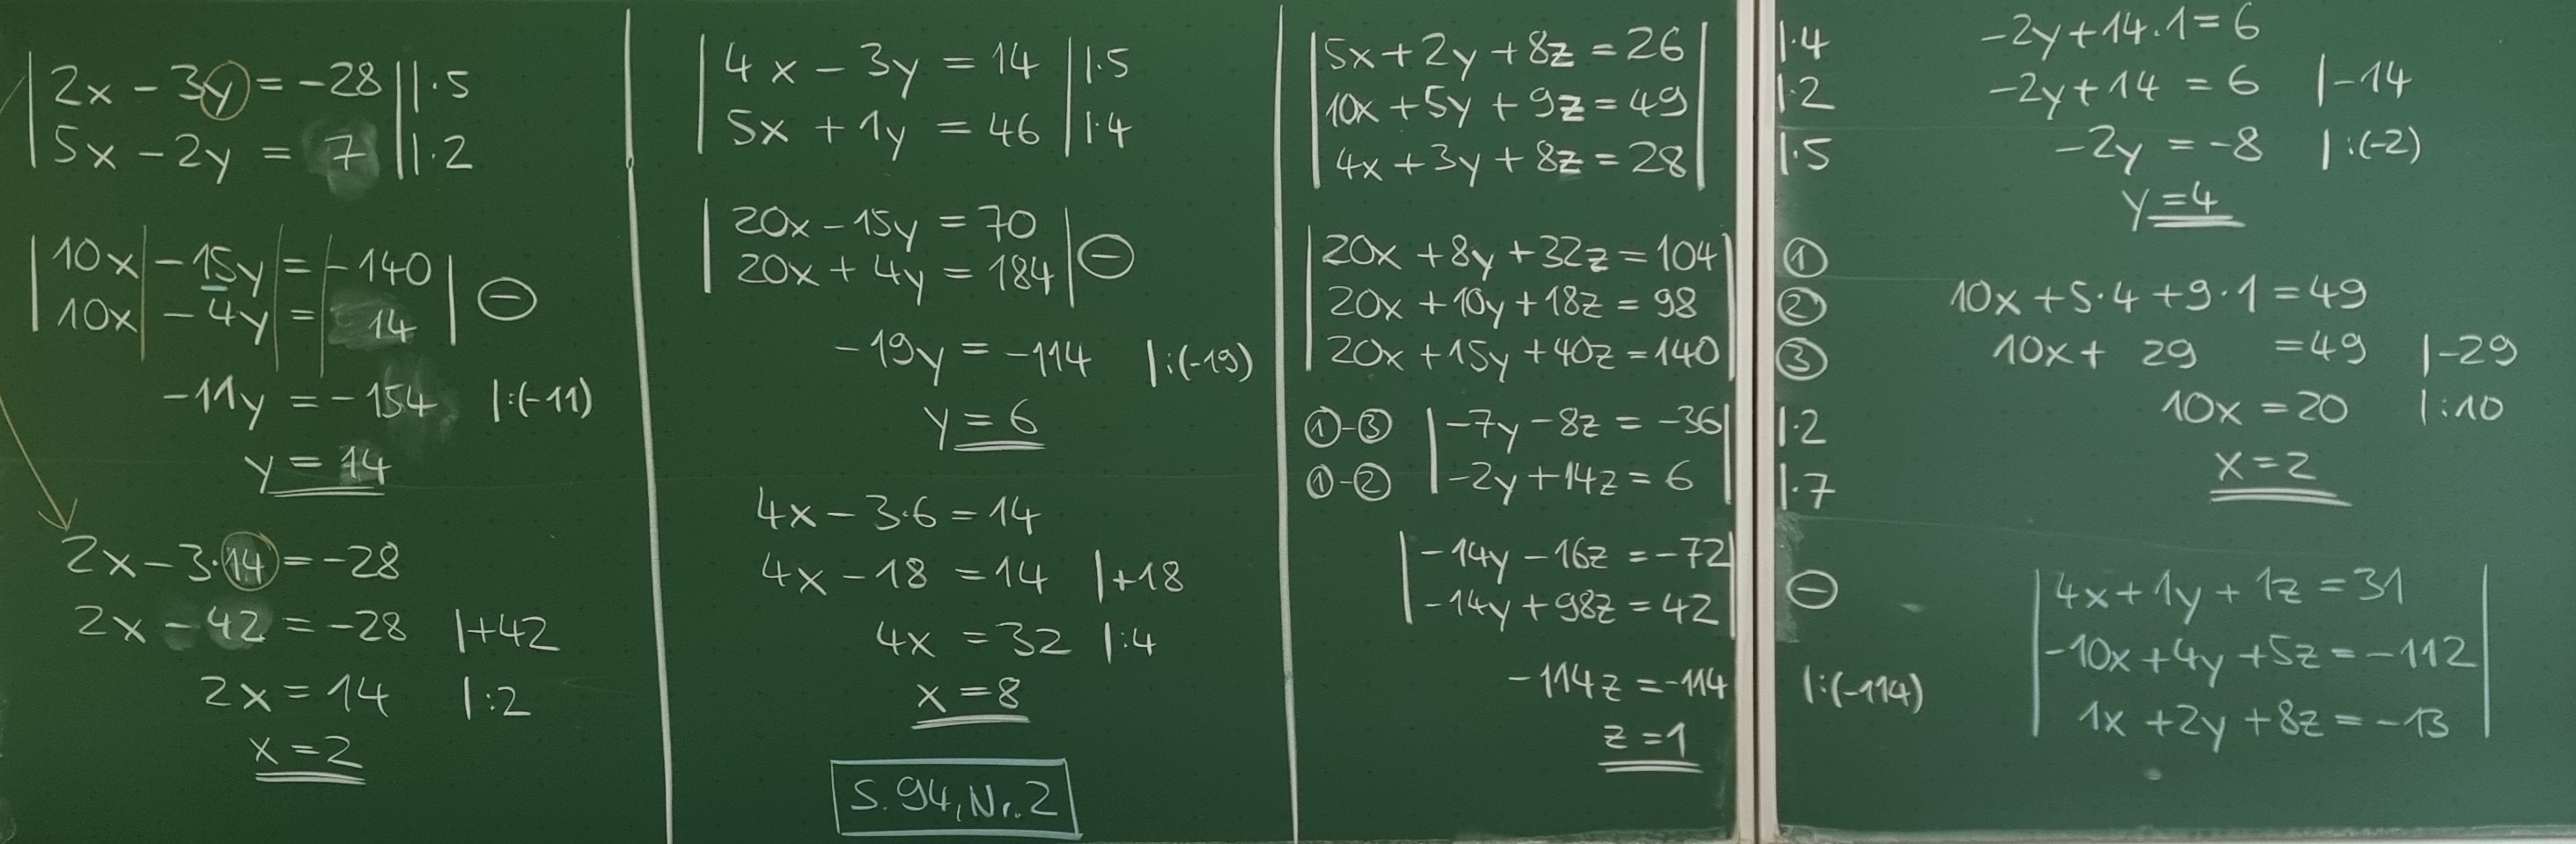 |2x - 3y = -28| |·5
|5x - 2y = 7| |·2
|10x| -15y |=| -140| ⊖
|10x| -4y |=| 14|
-11y = -154 |:(-11)
y = 14
2x - 3·14 = -28
2x - 42 = -28 |+42
2x = 14 |:2
x = 2
|4x - 3y = 14| |·5
|5x + 1y = 46| |·4
|20x - 15y = 70| ⊖
|20x + 4y = 184|
-19y = -114 |:(-19)
y = 6
4x - 3·6 = 14
4x - 18 = 14 |+18
4x = 32 |:4
x = 8
S. 94, Nr. 2
|5x + 2y + 8z = 26| |·4
|10x + 5y + 9z = 49| |·2
|4x + 3y + 8z = 28| |·5
|20x + 8y + 32z = 104| ①
|20x + 10y + 18z = 98| ②
|20x + 15y + 40z = 140| ③
①-③ |-7y - 8z = -36| |·2
①-② |-2y + 14z = 6| |·7
|-14y - 16z = -72| ⊖
|-14y + 98z = 42|
-114z = -114 |:(-114)
z = 1
-2y + 14·1 = 6
-2y + 14 = 6 |-14
-2y = -8 |:(-2)
y = 4
10x + 5·4 + 9·1 = 49
10x + 29 = 49 |-29
10x = 20 |:10
x = 2
|4x + 1y + 1z = 31|
|-10x + 4y + 5z = -112|
|1x + 2y + 8z = -13|